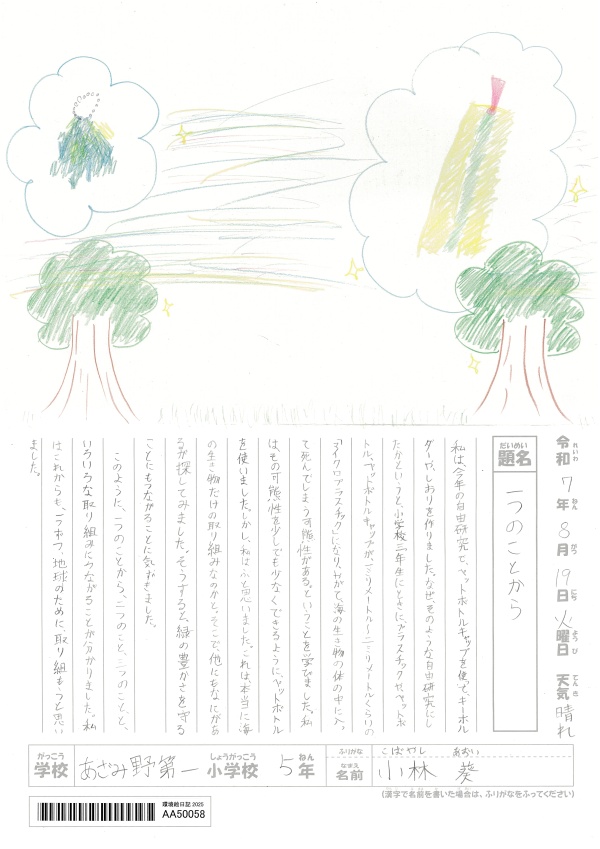 令和7年8月19日火曜日 天気 晴れ
れいわ ねん がつ にち ようび てんき
だいめい
題名 一つのことから
私は、今年の自由研究で、ペットボトルキャップを使って、キーホル
ダーや、しおりを作りました。なぜ、そのような自由研究にし
たかというと、小学校三年生にときに、プラスチックゼ、ペットボ
トル、ペットボトルキャップが、一ミリメートル〜二ミリメートルくらいの
「マイクロプラスチック」になり、やがて、海の生き物の体の中に入っ
て死んでしまう可能性がある。ということを学びました。私
はその可能性を少しでも少なくできるように、ペットボトル
を使いました。しかし、私はふと思いました。これは、本当に海
の生き物だけの取り組みなのかと。そこで、他にもなにがあ
るか探してみました。そうすると、緑の豊かさを守る
ことにもつながることに気づきました。
このように、一つのことから、二つのこと、三つのこと、と、
いろいろな取り組みにつながることが分かりました。私
はこれからも、一つずつ、地球のために、取り組もうと思い
ました。
がっこう しょうがっこう ねん
学校 あざみ野第一 小学校 5年
ふりがな こばやし あおい
なまえ
名前 小林 葵
(漢字で名前を書いた場合は、ふりがなをふってください)
環境絵日記 2025
AA50058